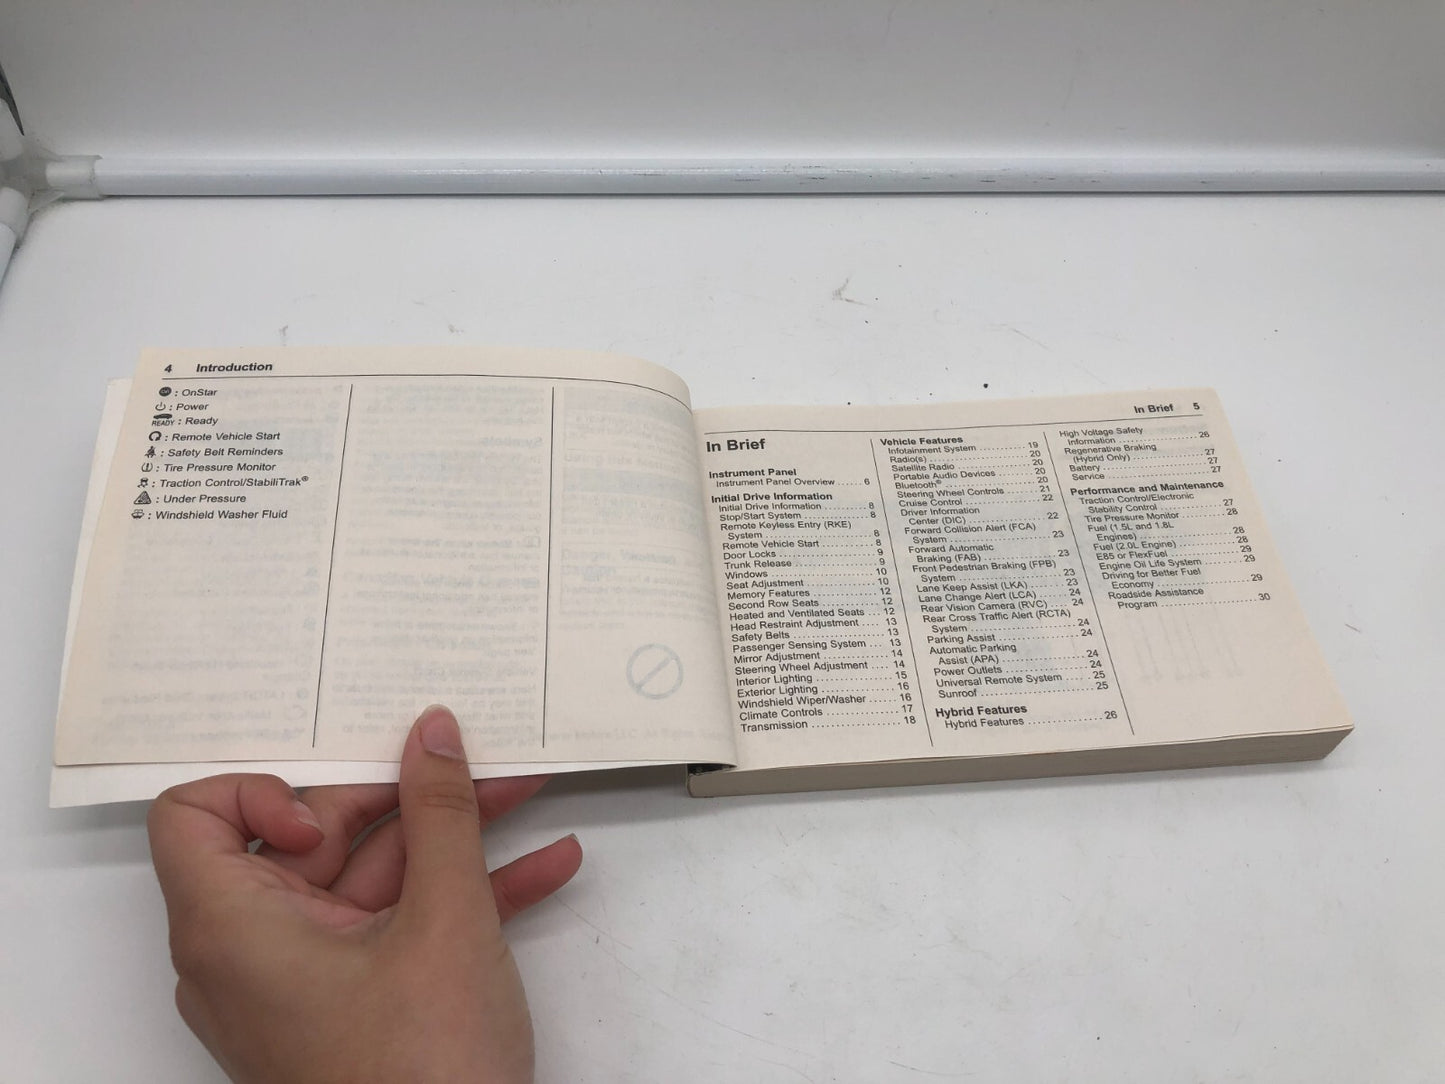 4 Introduction
: OnStar
: Power
READY : Ready
: Remote Vehicle Start
: Safety Belt Reminders
: Tire Pressure Monitor
: Traction Control/StabiliTrak®
: Under Pressure
: Windshield Washer Fluid
In Brief 5
In Brief
Instrument Panel
Instrument Panel Overview ...... 6
Initial Drive Information
Initial Drive Information .......... 8
Stop/Start System ............... 8
Remote Keyless Entry (RKE)
System ......................... 8
Remote Vehicle Start ............ 8
Door Locks ...................... 9
Trunk Release ................... 9
Windows ........................ 10
Seat Adjustment ................. 10
Memory Features ................ 12
Second Row Seats ............... 12
Heated and Ventilated Seats .... 12
Head Restraint Adjustment ...... 13
Safety Belts ..................... 13
Passenger Sensing System ..... 13
Mirror Adjustment ............... 14
Steering Wheel Adjustment .... 14
Interior Lighting ................. 15
Exterior Lighting ................. 16
Windshield Wiper/Washer ....... 16
Climate Controls ................ 17
Transmission .................... 18
Vehicle Features
Infotainment System ............ 19
Radio(s) ......................... 20
Satellite Radio ................... 20
Portable Audio Devices ......... 20
Bluetooth® ...................... 20
Steering Wheel Controls ........ 21
Cruise Control ................... 22
Driver Information
Center (DIC) ................... 22
Forward Collision Alert (FCA)
System ......................... 23
Forward Automatic
Braking (FAB) .................. 23
Front Pedestrian Braking (FPB)
System ......................... 23
Lane Keep Assist (LKA) ........ 23
Lane Change Alert (LCA) ....... 24
Rear Vision Camera (RVC) ..... 24
Rear Cross Traffic Alert (RCTA)
System ......................... 24
Parking Assist ................... 24
Automatic Parking
Assist (APA) ................... 24
Power Outlets ................... 24
Universal Remote System ...... 25
Sunroof ......................... 25
Hybrid Features
Hybrid Features ................. 26
High Voltage Safety
Information ..................... 26
Regenerative Braking
(Hybrid Only) ................... 27
Battery .......................... 27
Service .......................... 27
Performance and Maintenance
Traction Control/Electronic
Stability Control ................ 27
Tire Pressure Monitor ........... 28
Fuel (1.5L and 1.8L
Engines) ........................ 28
Fuel (2.0L Engine) ............... 28
E85 or FlexFuel .................. 29
Engine Oil Life System .......... 29
Driving for Better Fuel
Economy ....................... 29
Roadside Assistance
Program ........................ 30